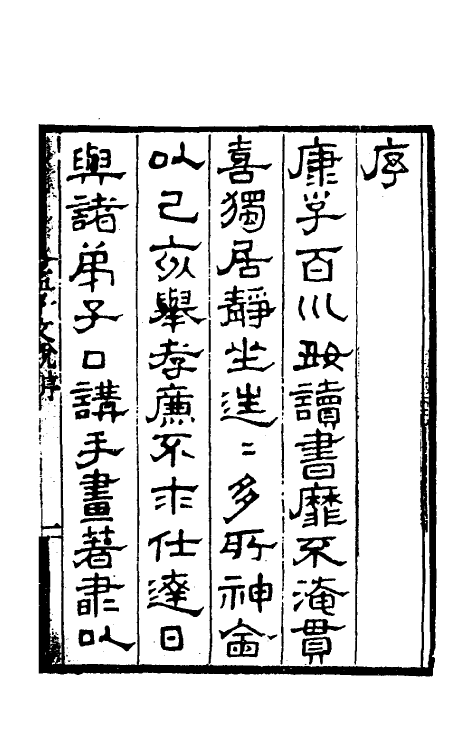 序
康字百川讀書靡不淹貫
喜獨居靜坐往〻多所神會
以己亥舉孝廉不求仕達日
與諸弟子口講手畫著以
孟子文說序
一